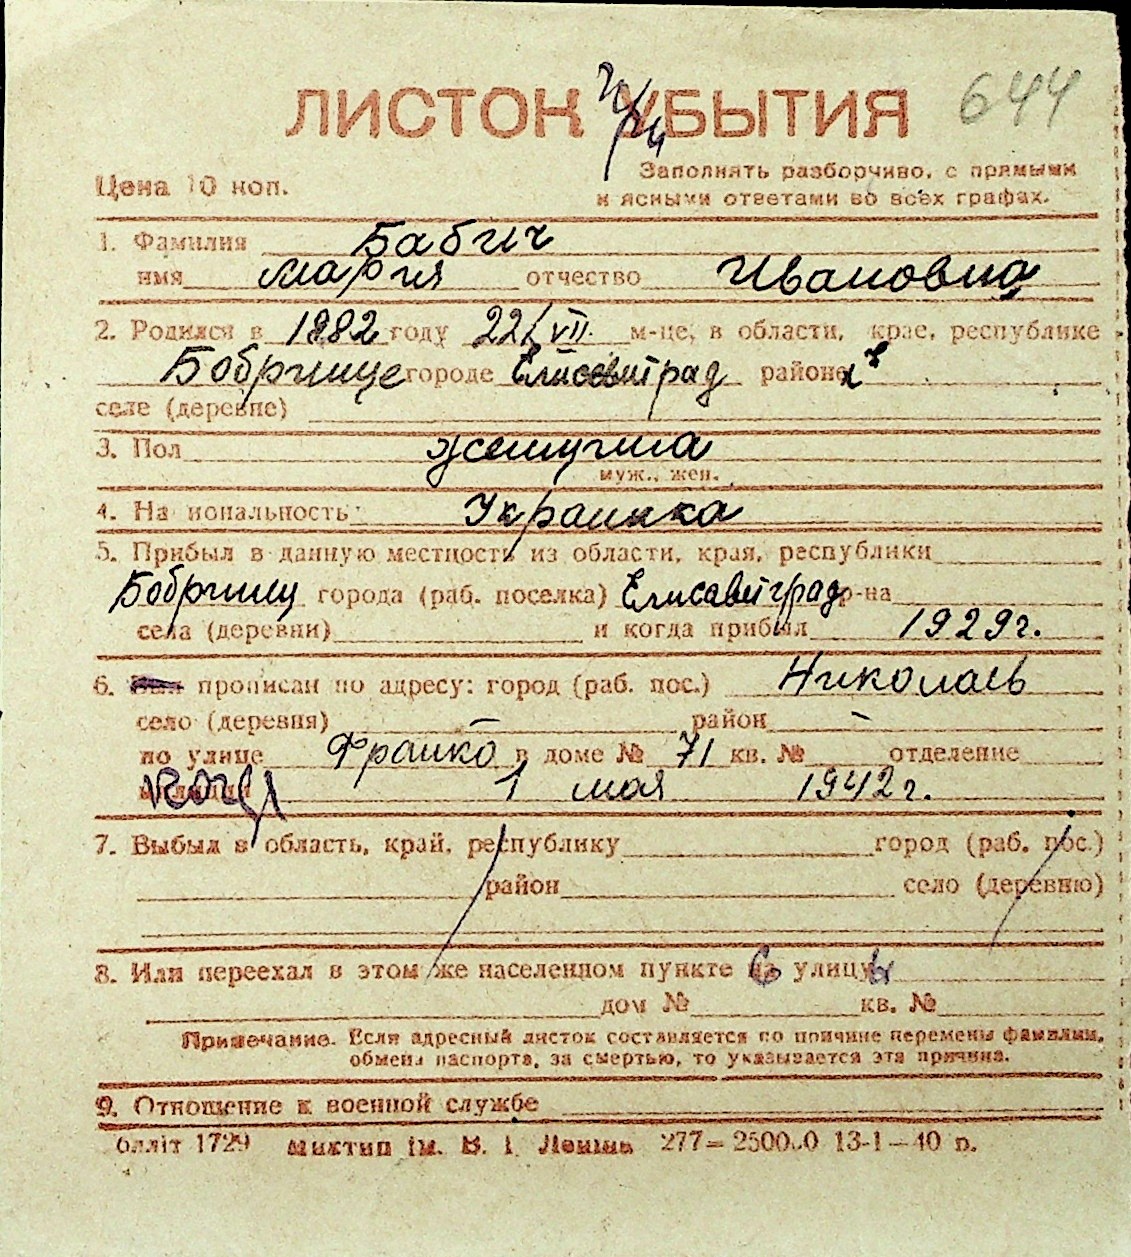 ЛИСТОК УБЫТИЯ 644
Цена 10 коп.
Заполнять разборчиво, с прямыми
и ясными ответами во всех графах.
1. Фамилия Бабич
имя Мария отчество Ивановна
2. Родился в 1882 году 22/VII. м-це, в области, крае, республике
Бобринце городе Елисаветград районе
селе (деревне)
3. Пол женщина
муж., жен.
4. На иональность Украинка
5. Прибыл в данную местность из области, края, республики
Бобринец города (раб. поселка) Елисаветград р-на
села (деревни) и когда прибыл 1929г.
6. прописан по адресу: город (раб. пос.) Николаев
село (деревня) – район –
по улице Франко в доме № 71 кв. № отделение
1 мая 1942г.
7. Выбыл в область, край, республику город (раб. пос.)
район село (деревню)
8. Или переехал в этом же населенном пункте на улицу
дом № кв. №
Примечание. Если адресный листок составляется по причине перемены фамилии,
обмена паспорта, за смертью, то указывается эта причина.
9. Отношение к военной службе
блліт 1729 Миктип ім. В. І. Леніна 277– 13-1–40 р.